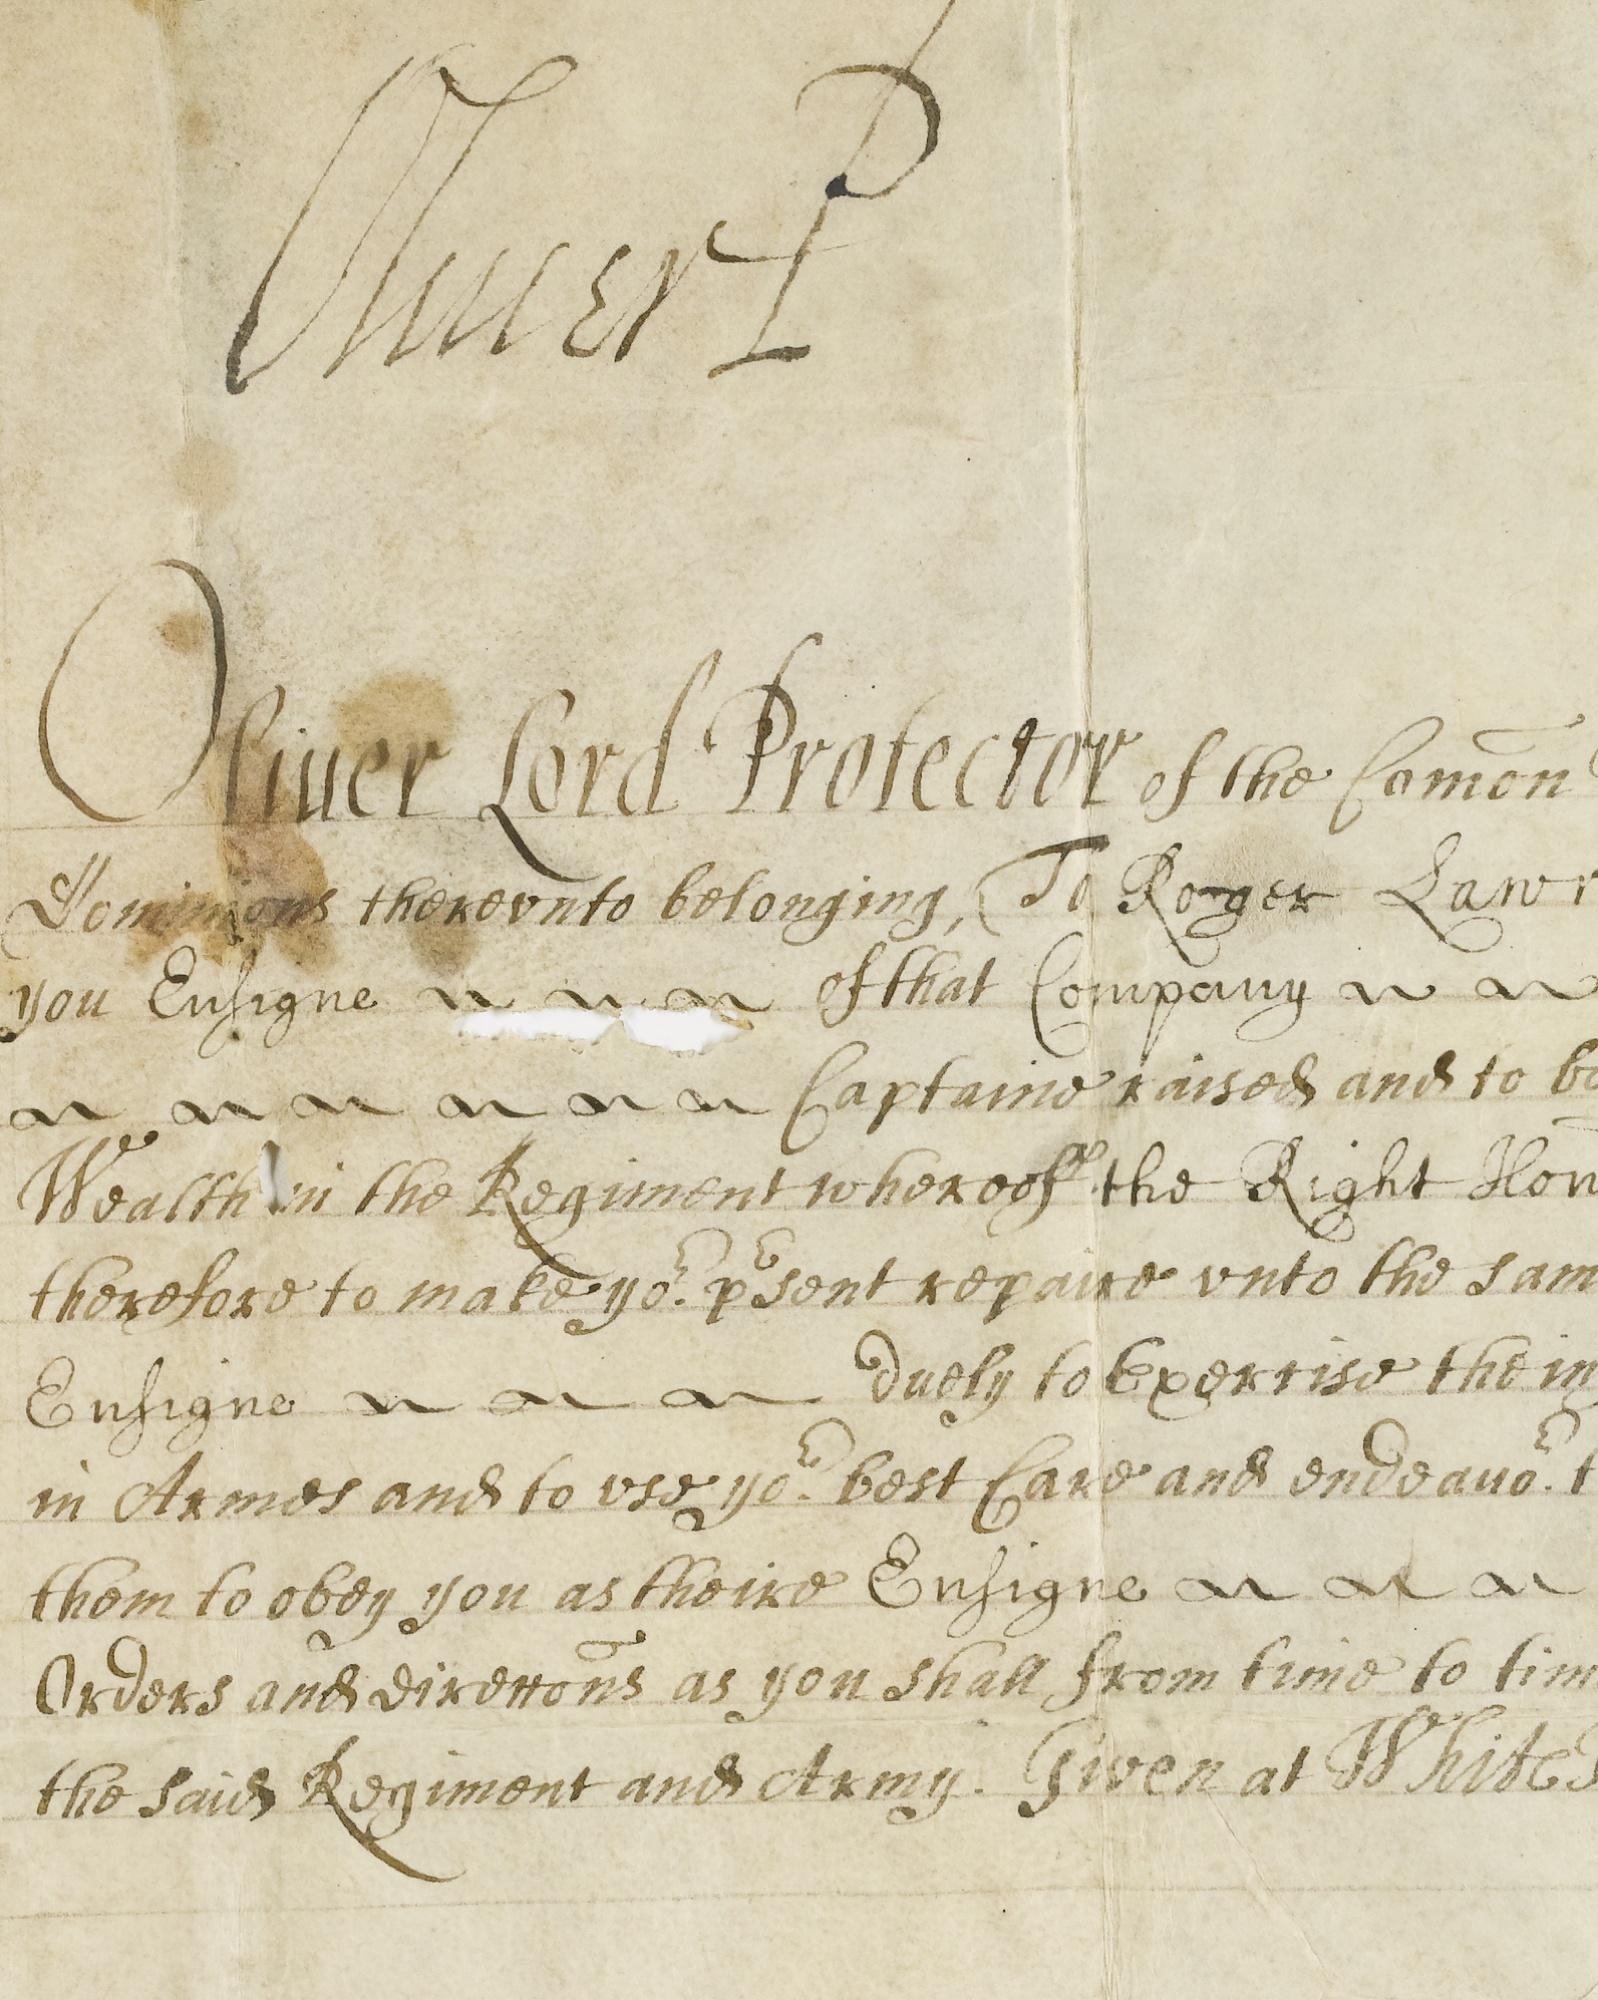 Oliver P
Oliuer Lord Protector of the Com̄on
Dominions therevnto belonging, To Roger Lawr
you Ensigne of that Company
Captaine raised and to be
Wealth in the Regiment whereoff the Right Hon
therefore to make yoʳ. pʳsent repaire vnto the sam
Ensigne duely to Exercise the in
in Armes and to vse yoʳ. best Care and endeauoʳ. t
them to obey you as theire Ensigne
Orders and direcc̄ons as you shall from time to tim
the said Regiment and Army. Given at White